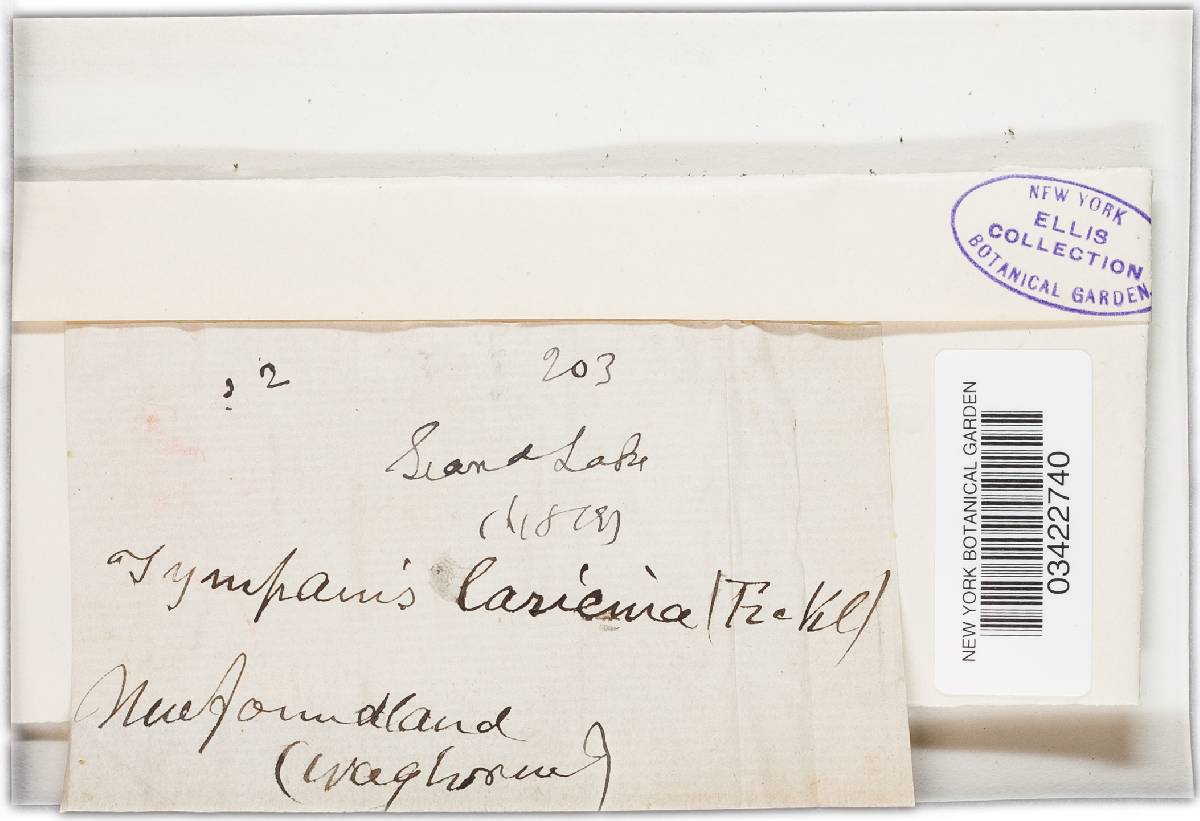 NEW YORK
ELLIS
COLLECTION
BOTANICAL GARDEN
2
203
Grand Lake
Tympanis laricina (Fckl)
Newfoundland
(Waghorne)
NEW YORK BOTANICAL GARDEN
03422740